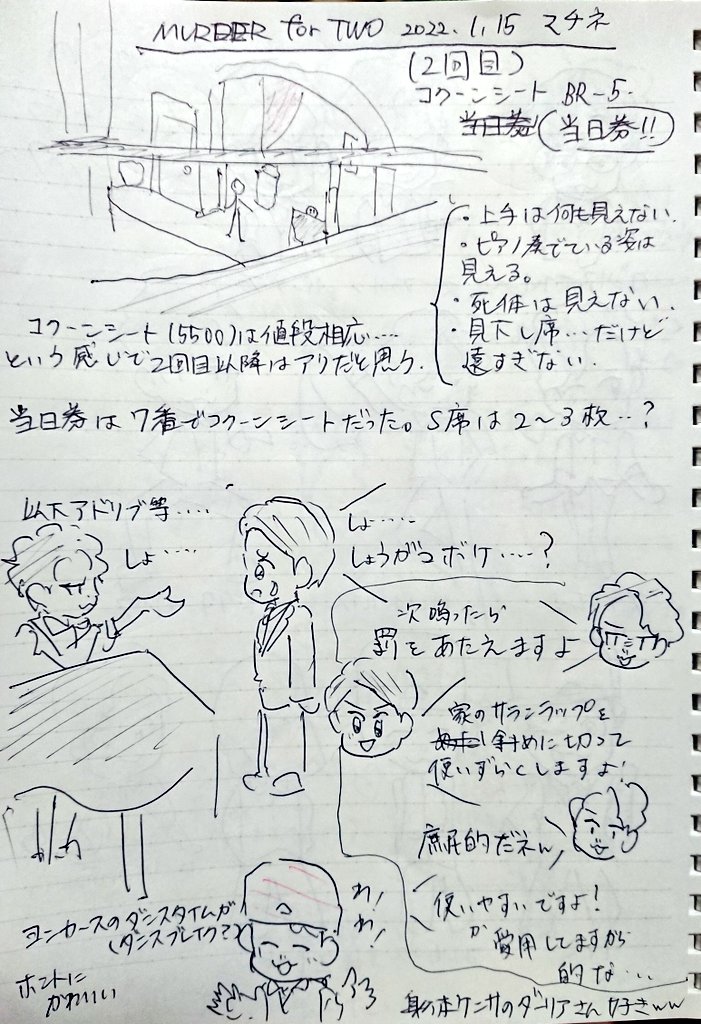 MURDER for TWO 2022.1.15 マチネ
(2回目)
コクーンシート BR-5.
当日券!!
・上手は何も見えない.
・ピアノ奏でている姿は
見える。
・死体は見えない.
・見下し席…だけど
遠すぎない.
コクーンシート(5500)は値段相応…
という感じで2回目以降はアリだと思う.
当日券は7番でコクーンシートだった。S席は2〜3枚‥?
以下アドリブ等‥‥
しょ‥‥
しょ‥‥
しょうがコボケ‥‥?
次鳴ったら
罰をあたえますよ
家のサランラップを
斜めに切って
使いずらくしますよ!
庶民的だネん
使いやすいですよ!
か 愛用してますから
的な…
ヨンカースのダンスタイムが
(ダンスブレイク?)
わ!
わ!
ホントに
かわいい
のダーリアさん好きww